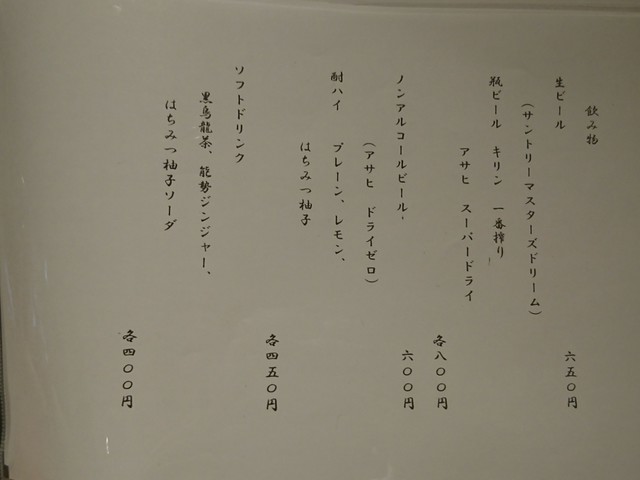 飲み物
生ビール
(サントリーマスターズドリーム)
六五〇円
瓶ビール キリン 一番搾り
アサヒ スーパードライ
各八〇〇円
ノンアルコールビール
(アサヒ ドライゼロ)
六〇〇円
酎ハイ プレーン、レモン、
はちみつ柚子
各四五〇円
ソフトドリンク
黒烏龍茶、能勢ジンジャー、
はちみつ柚子ソーダ
各四〇〇円